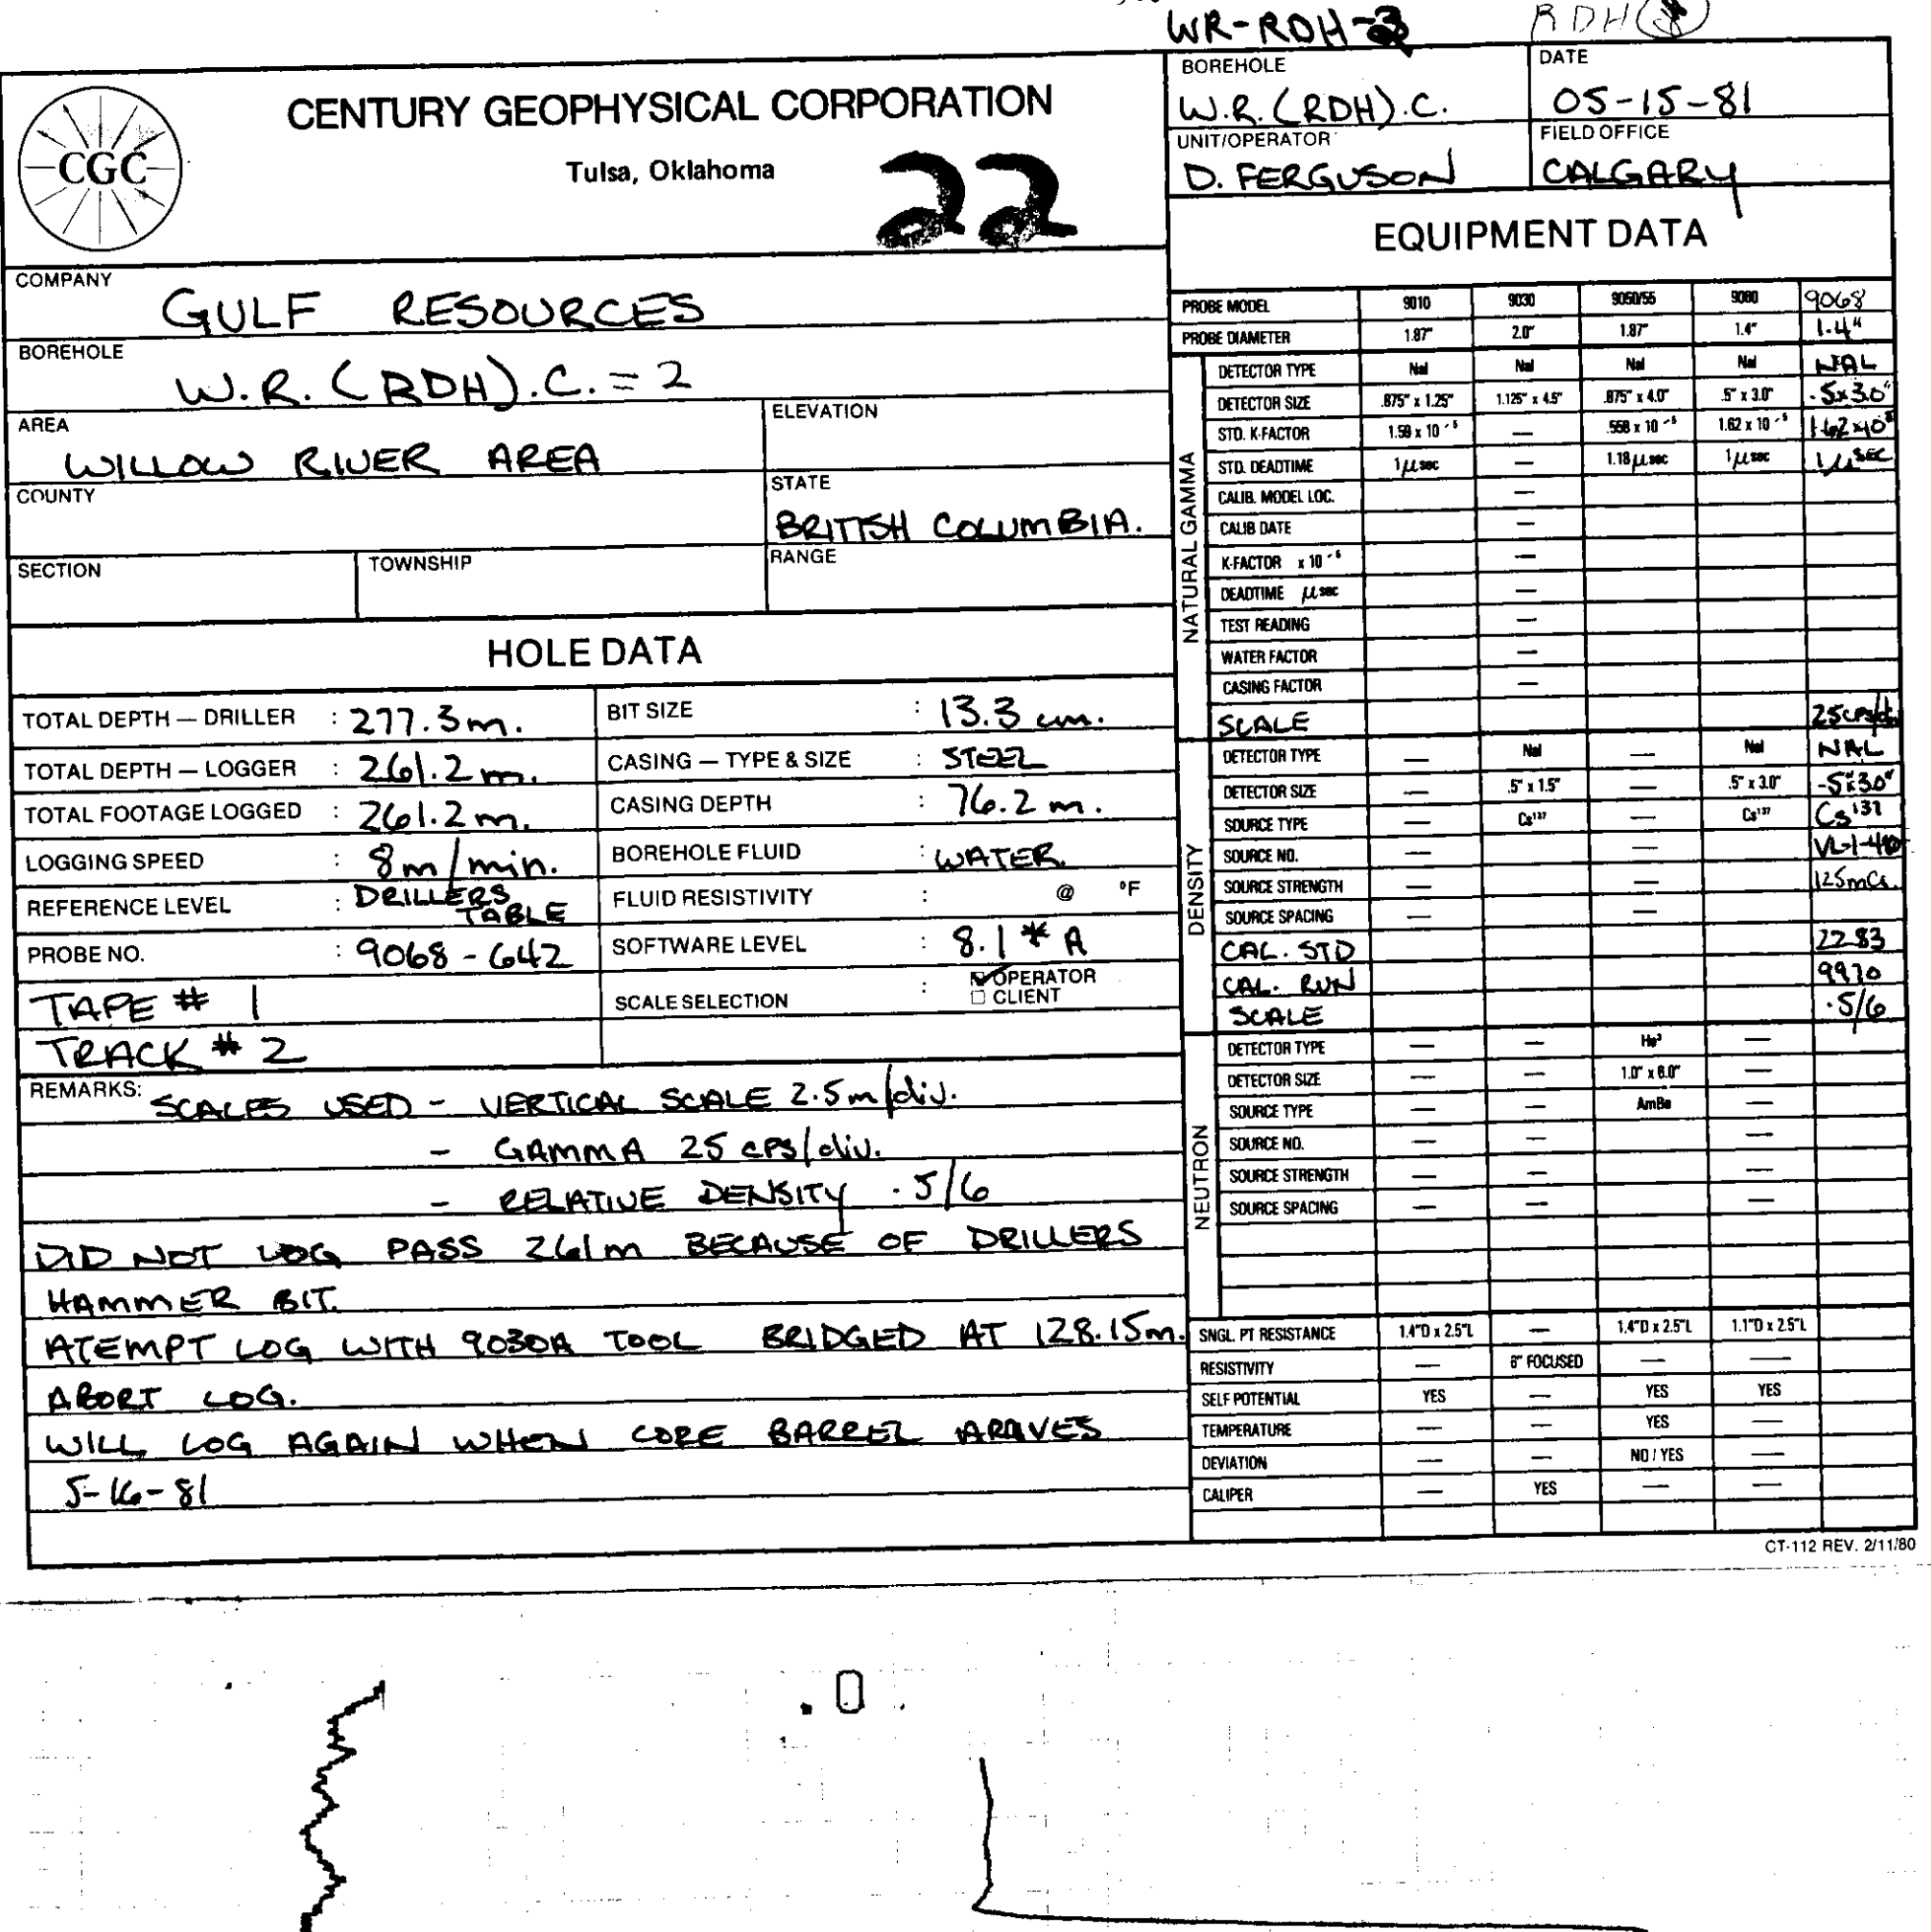 WR-RDH-
RDH
CGC
CENTURY GEOPHYSICAL CORPORATION
Tulsa, Oklahoma
22
BOREHOLE
W.R.(RDH).C.
DATE
05-15-81
UNIT/OPERATOR
D. FERGUSON
FIELD OFFICE
CALGARY
COMPANY
GULF RESOURCES
BOREHOLE
W.R.(RDH).C.=2
AREA
WILLOW RIVER AREA
ELEVATION
COUNTY
STATE
BRITISH COLUMBIA.
SECTION TOWNSHIP RANGE
HOLE DATA
TOTAL DEPTH — DRILLER : 277.3m.
BIT SIZE : 13.3 cm.
TOTAL DEPTH — LOGGER : 261.2 m.
CASING — TYPE & SIZE : STEEL
TOTAL FOOTAGE LOGGED : 261.2 m.
CASING DEPTH : 76.2 m.
LOGGING SPEED : 8m/min.
BOREHOLE FLUID : WATER.
REFERENCE LEVEL : DRILLERS
TABLE
FLUID RESISTIVITY : @ °F
PROBE NO. : 9068-642
SOFTWARE LEVEL : 8.1 * A
TAPE # 1
SCALE SELECTION : ☑ OPERATOR
☐ CLIENT
TRACK # 2
REMARKS: SCALES USED - VERTICAL SCALE 2.5m/div.
- GAMMA 25 CPS/div.
- RELATIVE DENSITY .5/6
DID NOT LOG PASS 261m BECAUSE OF DRILLERS
HAMMER BIT.
ATEMPT LOG WITH 9030A TOOL BRIDGED AT 128.15m.
ABORT LOG.
WILL LOG AGAIN WHEN CORE BARREL ARRIVES
5-16-81
EQUIPMENT DATA
PROBE MODEL 9010 9030 9050/55 9080 9068
PROBE DIAMETER 1.87" 2.0" 1.87" 1.4" 1.4"
NATURAL GAMMA
DETECTOR TYPE NaI NaI NaI NaI NAL
DETECTOR SIZE .875" x 1.25" 1.125" x 4.5" .875" x 4.0" .5" x 3.0" .5x3.0"
STD. K-FACTOR 1.59 x 10⁻⁵ — .558 x 10⁻⁵ 1.62 x 10⁻⁵
STD. DEADTIME 1μsec — 1.18μsec 1μsec 1μSEC
CALIB. MODEL LOC. —
CALIB DATE —
K-FACTOR x 10⁻⁵ —
DEADTIME μsec —
TEST READING —
WATER FACTOR —
CASING FACTOR —
SCALE 25cps/div
DENSITY
DETECTOR TYPE — NaI — NaI NAL
DETECTOR SIZE — .5" x 1.5" — .5" x 3.0" .5"x3.0"
SOURCE TYPE — Cs¹³⁷ — Cs¹³⁷ Cs¹³⁷
SOURCE NO. — —
SOURCE STRENGTH — — 125mCi
SOURCE SPACING — —
CAL. STD 2283
CAL. RUN 9970
SCALE .5/6
NEUTRON
DETECTOR TYPE — — He³ —
DETECTOR SIZE — — 1.0" x 6.0" —
SOURCE TYPE — — AmBe —
SOURCE NO. — — —
SOURCE STRENGTH — — —
SOURCE SPACING — — —
SNGL. PT RESISTANCE 1.4"D x 2.5"L — 1.4"D x 2.5"L 1.1"D x 2.5"L
RESISTIVITY — 6" FOCUSED — —
SELF POTENTIAL YES — YES YES
TEMPERATURE — — YES —
DEVIATION — — NO / YES —
CALIPER — YES — —
CT-112 REV. 2/11/80
.0.